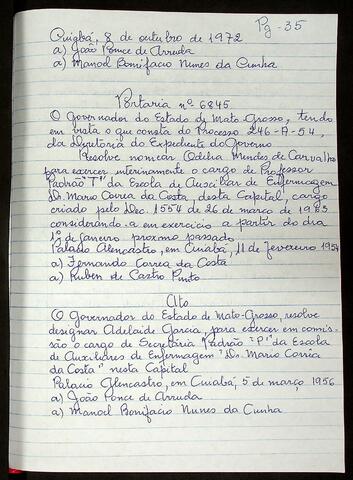 Pg-35
Cuiabá, 8 de outubro de 1972
a) João Ponce de Arruda
a) Manoel Bonifacio Nunes da Cunha
Portaria nº 6845
O Governador do Estado de Mato-Grosso, tendo
em vista o que consta do Processo 246-A-54,
da Diretoria do Expediente do Governo
Resolve nomear Odilia Mendes de Carvalho
para exercer interinamente o cargo de Professor
Padrão "T" da Escola de Auxiliar de Enfermagem
Dr. Mario Correa da Costa, desta Capital, cargo
criado pelo Dec. 1554 de 26 de março de 1953
considerando-a em exercício a partir do dia
1º de Janeiro proximo passado
Palacio Alencastro, em Cuiabá, 11 de fevereiro 1954
a) Fernando Correa da Costa
a) Ruben de Castro Pinto
Ato
O Governador do Estado de Mato-Grosso, resolve
designar Adelaide Garcia, para exercer em comis-
são o cargo de Secretária Padrão "P" da Escola
de Auxiliares de Enfermagem "Dr. Mario Correa
da Costa" nesta Capital
Palacio Alencastro, em Cuiabá, 5 de março 1956
a) João Ponce de Arruda
a) Manoel Bonifacio Nunes da Cunha